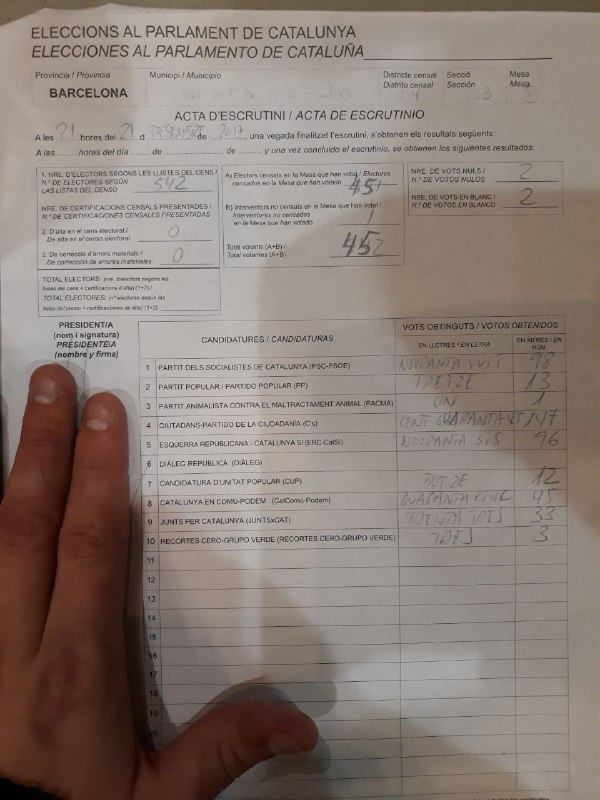 ELECCIONS AL PARLAMENT DE CATALUNYA
ELECCIONES AL PARLAMENTO DE CATALUÑA
Provincia / Provincia
Municipi / Municipio
Districte censal
Distrito censal
Secció
Sección
Mesa
Mesa
BARCELONA
ACTA D'ESCRUTINI / ACTA DE ESCRUTINIO
A les 21 hores del 21 d DESEMBRE de 2017, una vegada finalitzat l'escrutini, s'obtenen els resultats següents:
A las ......... horas del día ......... de ......... de ......... y una vez concluido el escrutinio, se obtienen los siguientes resultados:
1. NRE. D'ELECTORS SEGONS LES LLISTES DEL CENS /
N.º DE ELECTORES SEGÚN
LAS LISTAS DEL CENSO
542
NRE. DE CERTIFICACIONS CENSALS PRESENTADES /
N.º DE CERTIFICACIONES CENSALES PRESENTADAS
2. D'alta en el cens electoral /
De alta en el censo electoral
0
3. De correcció d'errors materials /
De corrección de errores materiales:
0
TOTAL ELECTORS: (nre. d'electors segons les
llistes del cens + certificacions d'alta) (1+2) /
TOTAL ELECTORES: (nº electores según las
listas del censo + certificaciones de alta) (1+2)
A) Electors censats en la Mesa que han votat / Electores
censados en la Mesa que han votado
451
B) Interventors no censats en la Mesa que han votat /
Interventores no censados
en la Mesa que han votado
1
Total votants (A+B) /
Total votantes (A+B)
452
NRE. DE VOTS NULS /
N.º DE VOTOS NULOS
2
NRE. DE VOTS EN BLANC /
N.º DE VOTOS EN BLANCO
2
PRESIDENT/A
(nom i signatura)
PRESIDENTE/A
(nombre y firma)
CANDIDATURES / CANDIDATURAS
VOTS OBTINGUTS / VOTOS OBTENIDOS
EN LLETRES / EN LETRA
EN XIFRES / EN NÚM.
1 PARTIT DELS SOCIALISTES DE CATALUNYA (PSC-PSOE) NORANTA VUIT 98
2 PARTIT POPULAR / PARTIDO POPULAR (PP) TRETZE 13
3 PARTIT ANIMALISTA CONTRA EL MALTRACTAMENT ANIMAL (PACMA) UN 1
4 CIUTADANS-PARTIDO DE LA CIUDADANÍA (C's) CENT QUARANTA SET 147
5 ESQUERRA REPUBLICANA - CATALUNYA SÍ (ERC-CatSí) NORANTA SIS 96
6 DIÀLEG REPUBLICÀ (DIÀLEG)
7 CANDIDATURA D'UNITAT POPULAR (CUP) DOTZE 12
8 CATALUNYA EN COMÚ-PODEM (CatComú-Podem) QUARANTA CINC 45
9 JUNTS PER CATALUNYA (JUNTSxCAT) TRENTA TRES 33
10 RECORTES CERO-GRUPO VERDE (RECORTES CERO-GRUPO VERDE) TRES 3
11
12
13
14
15
16
17
18
19
20